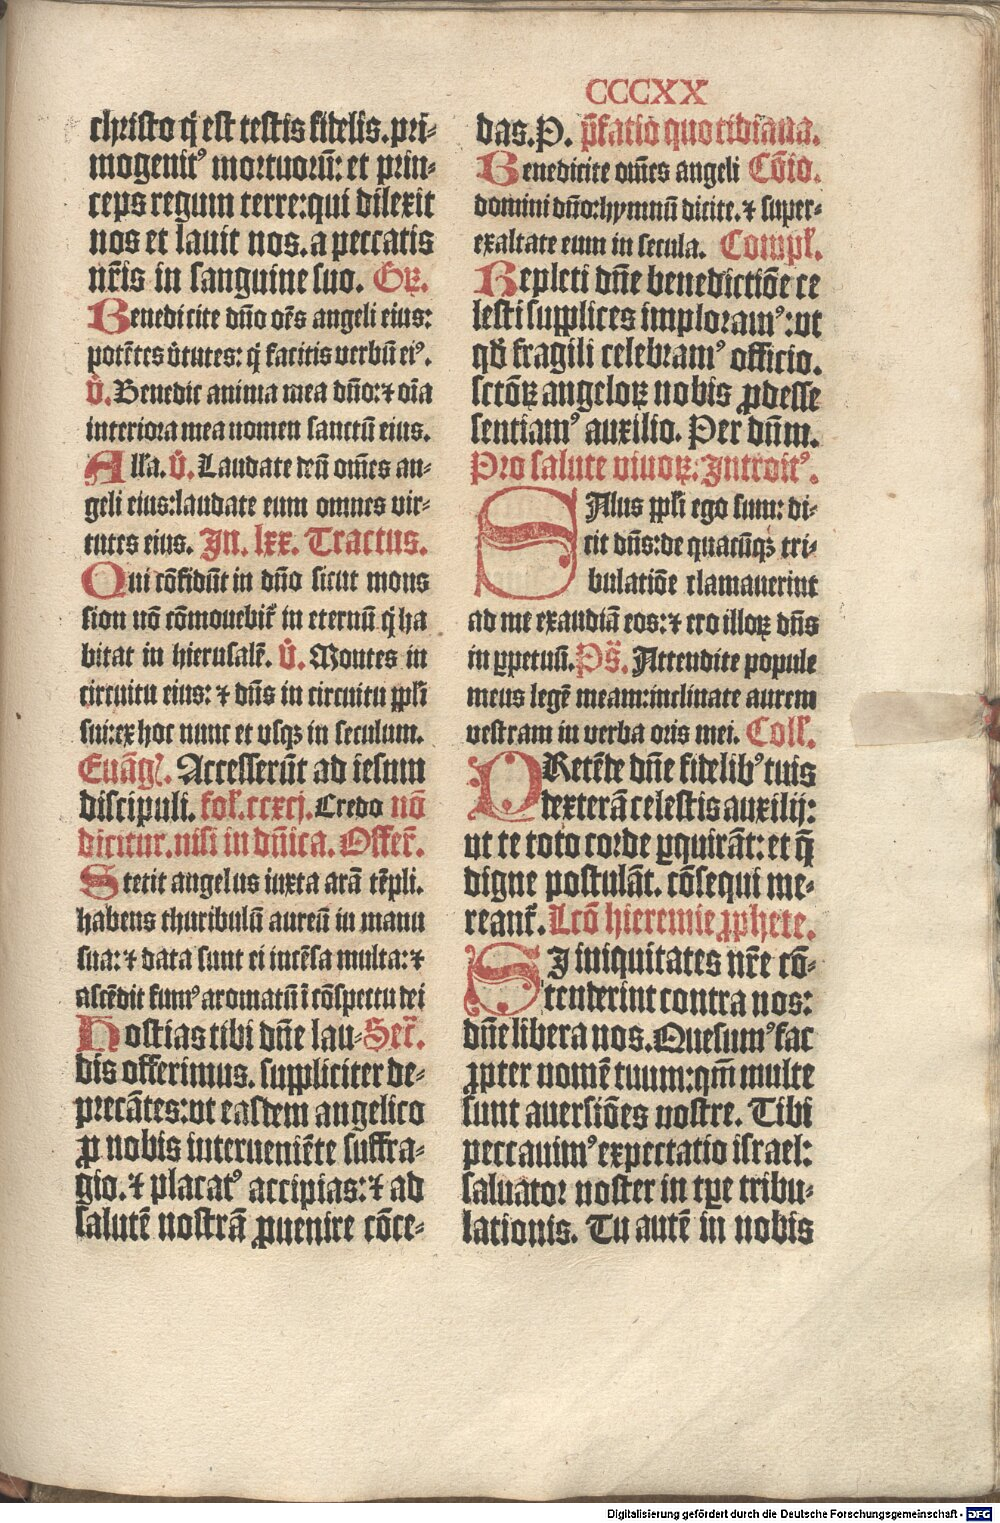 CCCXX
christo q̇ est testis fidelis. pri⸗
mogenitꝰ mortuorū: et prin⸗
ceps regum terre: qui dilexit
nos et lauit nos. a peccatis
nr̄is in sanguine suo. Gꝶ.
Benedicite dn̄o oēs angeli eius:
potētes v̓tutes: q̇ facitis verbū eiꝰ.
V̓. Benedic anima mea dn̄o: ⁊ oīa
interiora mea nomen sanctū eius.
Alla. V̓. Laudate deū om̄es an⸗
geli eius: laudate eum omnes vir⸗
tutes eius. In. lxx. Tractus.
Qui cōfidūt in dn̄o sicut mons
sion nō cōmouebit̄ in eternū q̇ ha
bitat in hierusalē. V̓. Montes in
circuitu eius: ⁊ dn̄s in circuitu ppl̄i
sui: ex hoc nunc et vsqꝫ in seculum.
Euāgl. Accesserūt ad iesum
discipuli. fol. ccxcj. Credo nō
dicitur. nisi in dn̄ica. Offer̄.
Stetit angelus iuxta arā tēpli.
habens thuribulū aureū in manu
sua: ⁊ data sunt ei incēsa multa: ⁊
ascēdit fumꝰ aromatū ī cōspectu dei
Hostias tibi dn̄e lau⸗ Secr̄.
dis offerimus. suppliciter de⸗
precātes: vt easdem angelico
ꝓ nobis interueniēte suffra⸗
gio. ⁊ placatꝰ accipias: ⁊ ad
salutē nostrā ꝓuenire cōce⸗
das. P. p̄fatio quotidiana.
Benedicite om̄es angeli Cōīo.
domini dn̄o: hymnū dicite. ⁊ super⸗
exaltate eum in secula. Compl̄.
Repleti dn̄e benedictiōe ce
lesti supplices imploramꝰ: vt
qd̓ fragili celebramꝰ officio.
sctōꝝ angeloꝝ nobis ꝓdesse
sentiamꝰ auxilio. Per dn̄m.
Pro salute viuoꝝ. Introitꝰ.
SAlus ppl̄i ego sum: di⸗
cit dn̄s: de quacūqꝫ tri⸗
bulatiōe clamauerint
ad me exaudiā eos: ⁊ ero illoꝝ dn̄s
in ꝑpetuū. Ps̄. Attendite popule
meus legē meam: inclinate aurem
vestram in verba oris mei. Coll̄.
PRetēde dn̄e fidelibꝰ tuis
dexterā celestis auxilij:
vt te toto corde ꝑquirāt: et q̄
digne postulāt. cōsequi me⸗
reant̄. Lcō hieremie ꝓphete.
SI iniquitates nr̄e cō⸗
tenderint contra nos:
dn̄e libera nos. Quesumꝰ fac
ꝓpter nomē tuum: qm̄ multe
sunt auersiōes nostre. Tibi
peccauimꝰ expectatio israel:
saluator noster in tꝑe tribu⸗
lationis. Tu autē in nobis
Digitalisierung gefördert durch die Deutsche Forschungsgemeinschaft - DFG